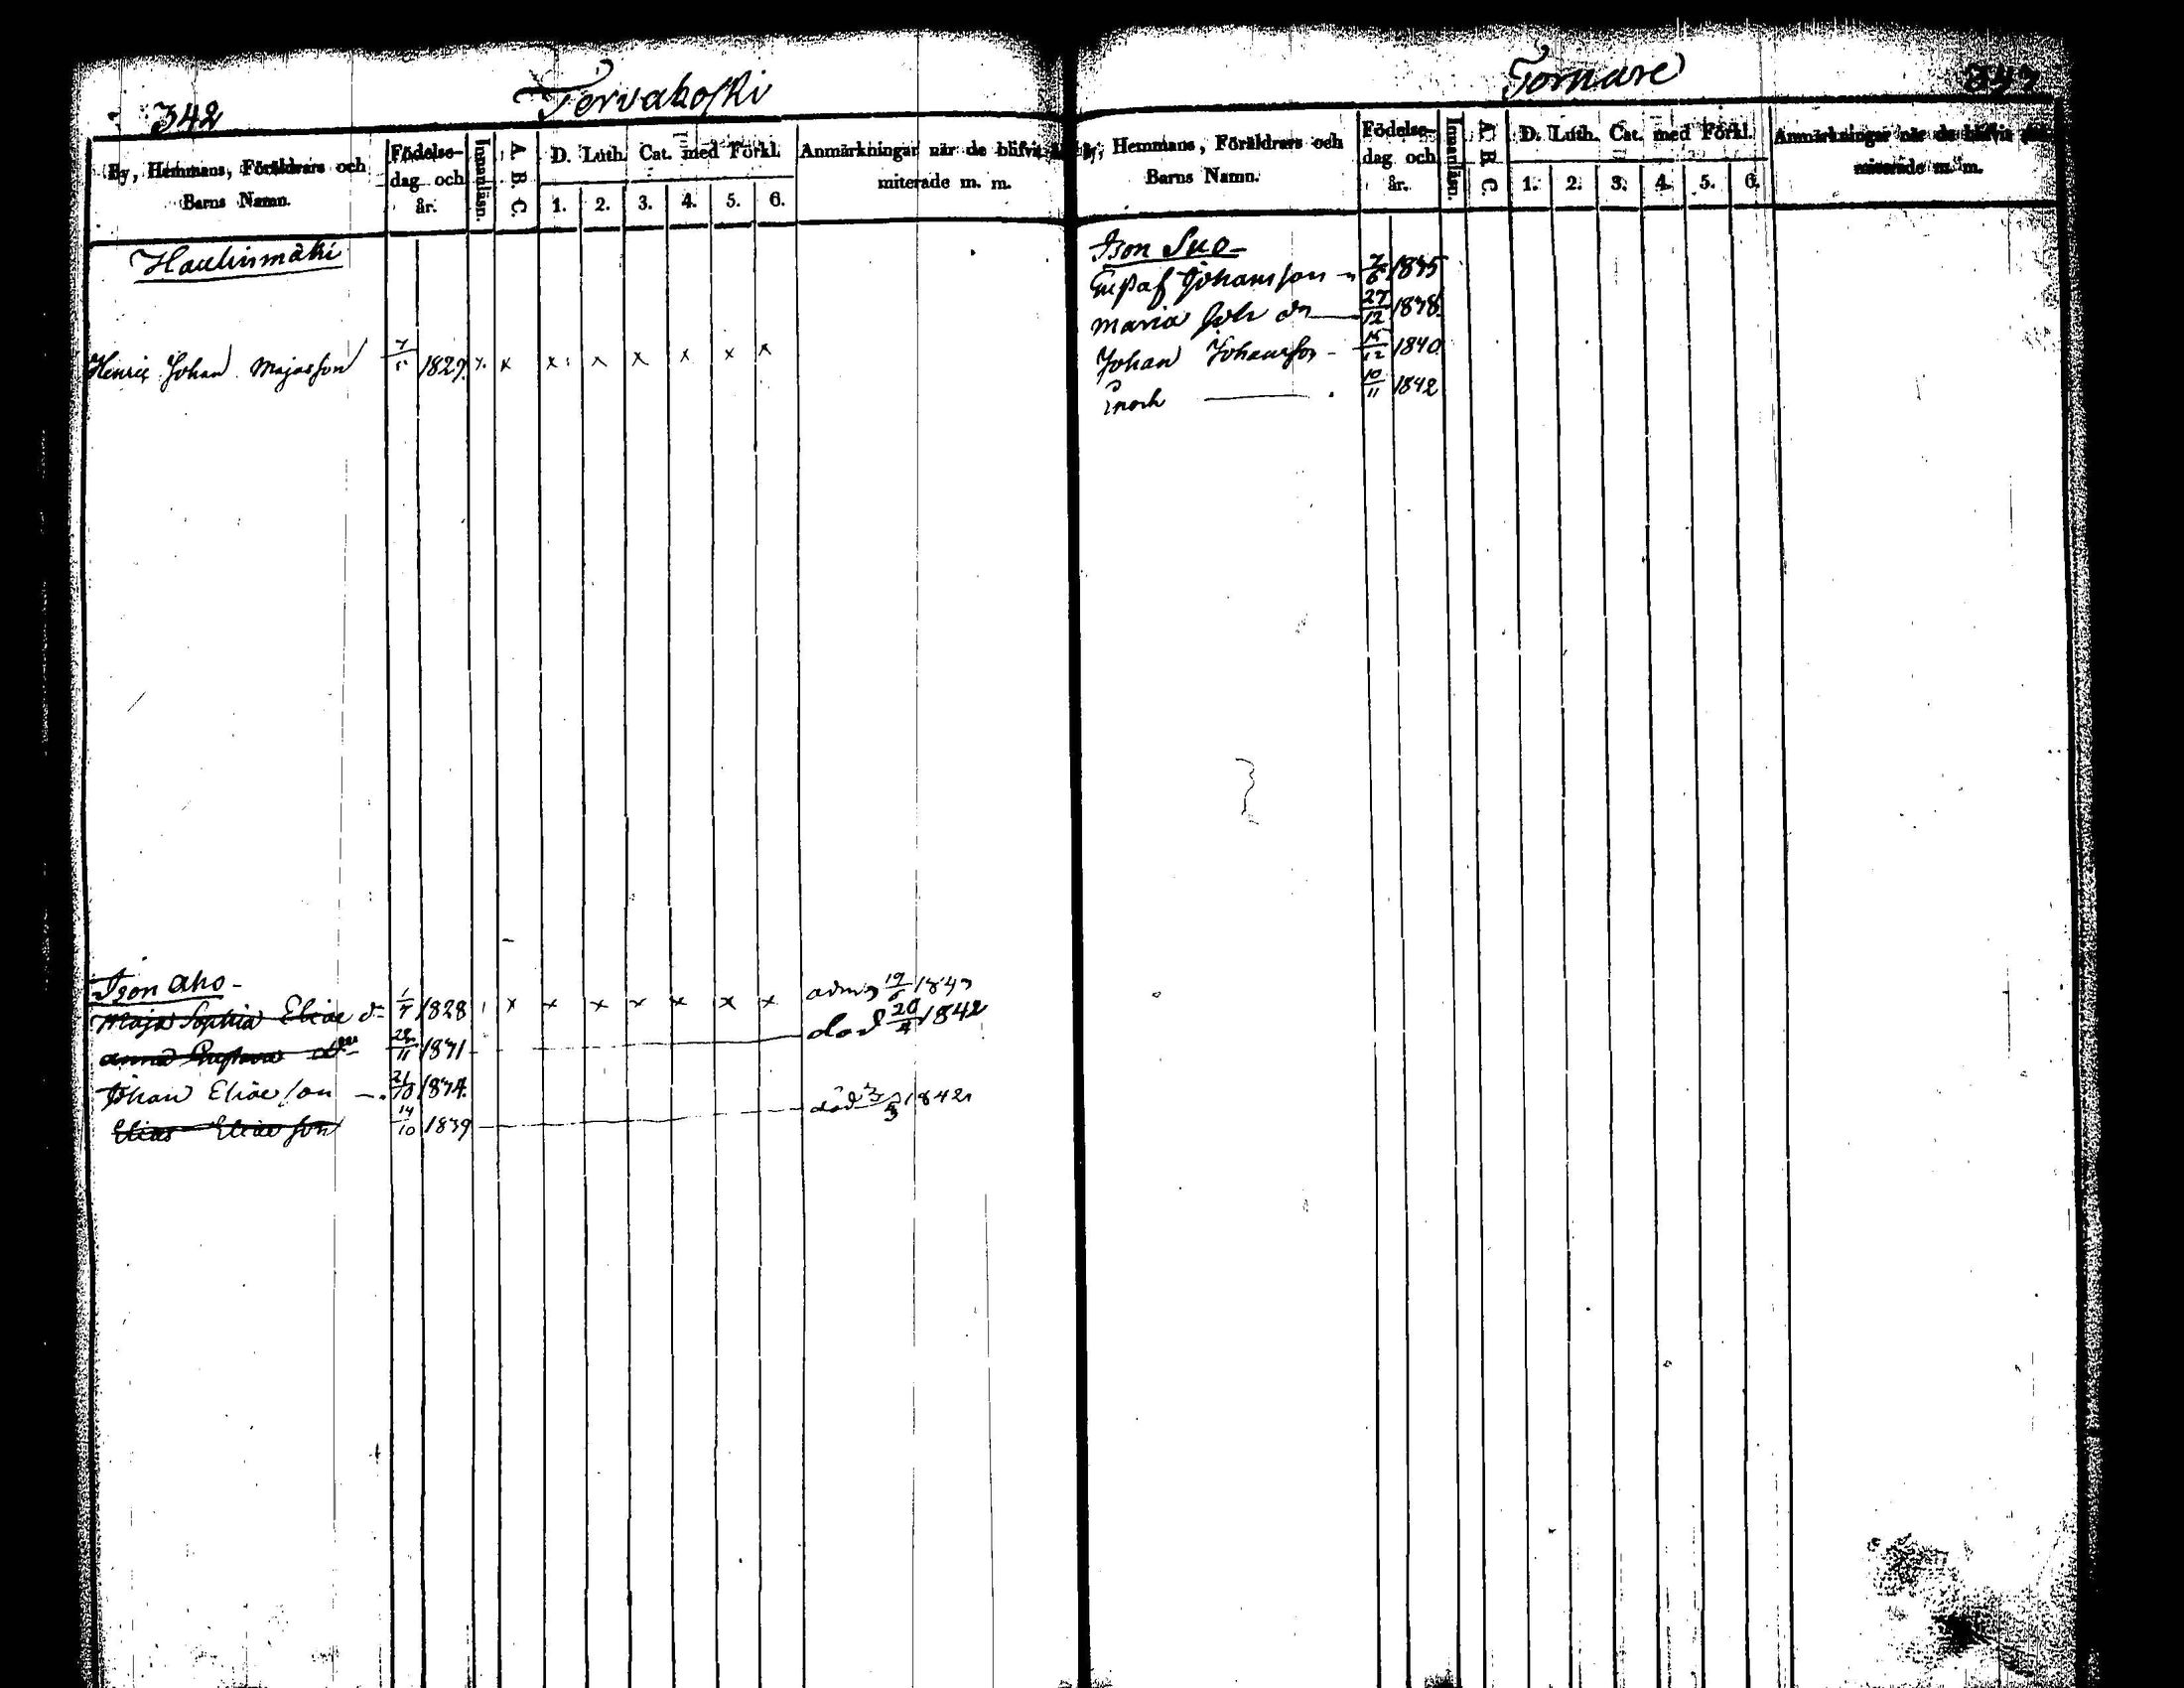 342
Tervakoski
By, Hemmans, Föräldrars och Barns Namn.
Födelse-dag och år.
Innanläsn.
A. B. C.
D. Luth. Cat. med Förkl.
1. 2. 3. 4. 5. 6.
Anmärkningar när de blifvit
miterade m. m.
Hauhinmäki
Henric Johan Majasson 1829 x x x x x x x x
Ison Aho-
Maja Sophia Eliae d- 1828 x x x x x x x
Anna d:r
död 20/4 1842
Johan Eliæson 21/10
Elias Eliæson 14/10 1839
död 1842
Tornare
343
Hemmans, Föräldrars och Barns Namn.
Födelse-dag och år.
Innanläsn.
A. B. C.
D. Luth. Cat. med Förkl.
1. 2. 3. 4. 5. 6.
Anmärkningar när de blifvit
miterade m. m.
Ison Suo-
Gustaf Johansson
Maria Joh dr 27/12
Johan Johansson - 1840
Enoch 10/11 1842